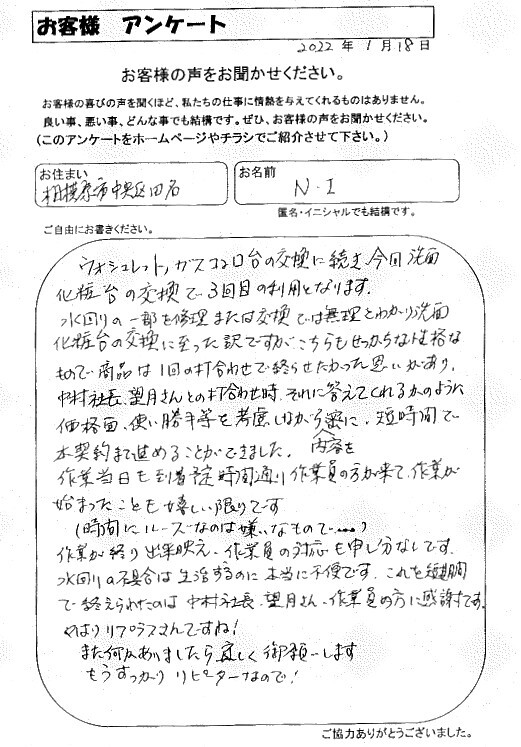 お客様 アンケート
2022 年 1 月 18 日
お客様の声をお聞かせください。
お客様の喜びの声を聞くほど、私たちの仕事に情熱を与えてくれるものはありません。
良い事、悪い事、どんな事でも結構です。ぜひ、お客様の声をお聞かせください。
(このアンケートをホームページやチラシでご紹介させて下さい。)
お住まい
相模原市中央区田名
お名前
N・I
匿名・イニシャルでも結構です。
ご自由にお書きください。
ウォシュレット、ガスコンロ台の交換に続き、今回洗面
化粧台の交換で3回目の利用となります。
水回りの一部を修理または交換では無理とわかり洗面
化粧台の交換に至った訳ですがこちらもせっかちな性格な
もので商品は1回の打合わせで終らせたかった思いがあり、
中村社長、望月さんとの打合わせ時、それに答えてくれるかのように
価格面、使い勝手等を考慮しながら 内容を密に、短時間で
本契約まで進めることができました。
作業当日も到着予定時間通り作業員の方が来て、作業が
始まったことも嬉しい限りです
(時間にルーズなのは嫌いなもので…)
作業が終り出来映え、作業員の対応も申し分なしです。
水回りの不具合は生活するのに本当に不便です。これを短期間
で終えられたのは中村社長、望月さん、作業員の方に感謝です。
やはりリプラスさんですね!
また何かありましたら宜しく御願いします
もうすっかりリピーターなので!
ご協力ありがとうございました。